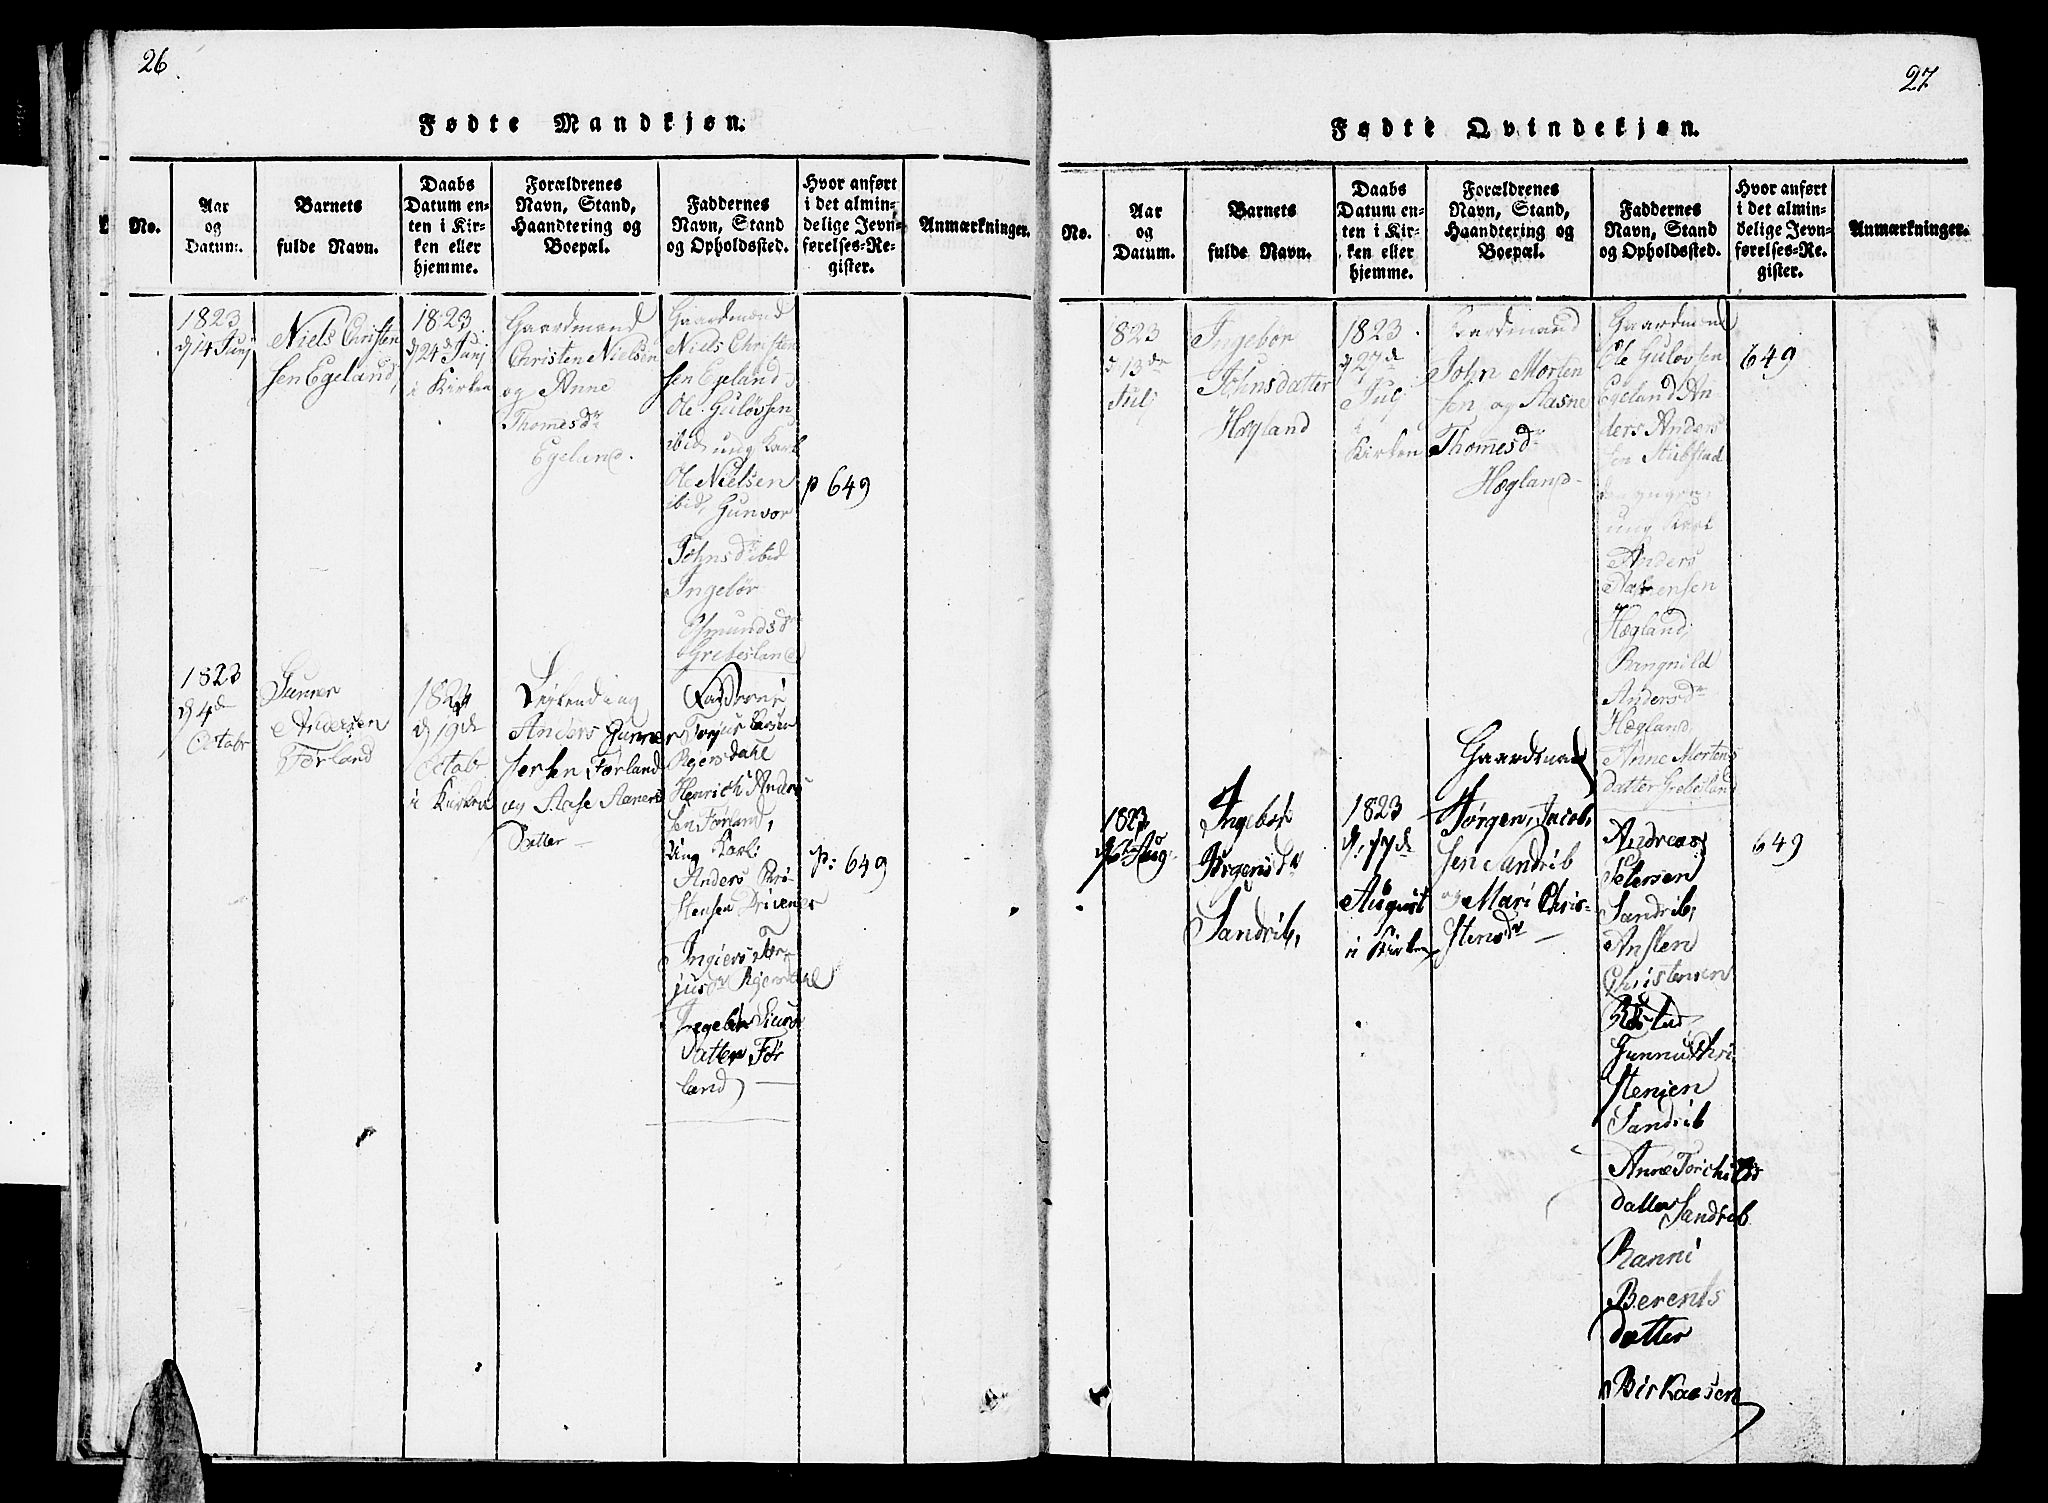 26
Fødte Mandkjøn.
No.
Aar
og
Datum.
Barnets
fulde Navn.
Daabs
Datum en-
ten i Kir-
ken eller
hjemme.
Forældrenes
Navn, Stand,
Haandtering og
Boepæl.
Faddernes
Navn, Stand
og Opholdssted.
Hvor anført
i det almin-
delige Jevn-
førelses-Re-
gister.
Anmærkninger.
1823
d 14 Junj
Niels Christen
sen Egeland,
1823
d 24d Junj
i Kirken
Gaardmand
Christen Nielsen
og Anne
Thomesdr
Egeland.
Gaardmand
Niels Christen
sen Egeland,
Ole Guløvsen
ibid ung Karl
Ole Nielsen
ibid, Gunvor
Johnsdr ibid
Ingebør
Osmundsdr
Grebesland
p 649
1823
d 4de
Octobr
Gunner
Andersen
Førland
1823
d 19de
Octobr
i Kirken
Anders Gunner
sersen Førland
og Aase Aaners
Datter
Faddere
Torjus
Rejersdahl
Henrich Anders
sen Førland,
Ung Karl:
Anders Kri-
stensen Drivenes
Ingiers Tor-
jusdr Rejersdahl
Ingebør
Datter Før
land
p: 649
27
Fødte Qvindekjøn.
No.
Aar
og
Datum.
Barnets
fulde Navn.
Daabs
Datum en-
ten i Kir-
ken eller
hjemme.
Forældrenes
Navn, Stand,
Haandtering og
Boepæl.
Faddernes
Navn, Stand
og Opholdssted.
Hvor anført
i det almin-
delige Jevn-
førelses-Re-
gister.
Anmærkninger.
1823
d 13de
Julj
Ingebor
Johnsdatter
Hægland
1823
d 27de
Julj
i
Kirken
Gaardmand
John Morten
sen og Aasne
Thomesdr
Hægland
Gaardmand
Ole Guløvsen
Egeland An
ders Anders
sen Stubstad
ung Karl
Anders
Hægland,
Rangnild
Andersdr
Hægland,
Anne Mortens
datter Grebesland
649
1823
Aug
Ingebor
Jørgensdr
Sandrib,
1823
d. 17de
August
i Kirken
Gaardmand
Jørgen Jacob,
sen Sandrib
og Mari Chris-
stensdr
Andreas
Petersen
Sandrib,
Ansten
Christensen
Gunnu Chri
stensen
Sandrib
Anne Torchilds
datter Sandrib
Ranni
Berents
datter
Birkaasen
649